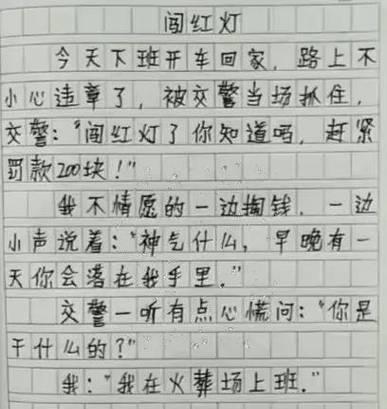 闯红灯
今天下班开车回家，路上不
小心违章了，被交警当场抓住，
交警：“闯红灯了你知道吗，赶紧
罚款200块！”
我不情愿的一边掏钱，一边
小声说着：“神气什么，早晚有一
天你会落在我手里．”
交警一听有点心慌问：“你是
干什么的？”
我：“我在火葬场上班．”